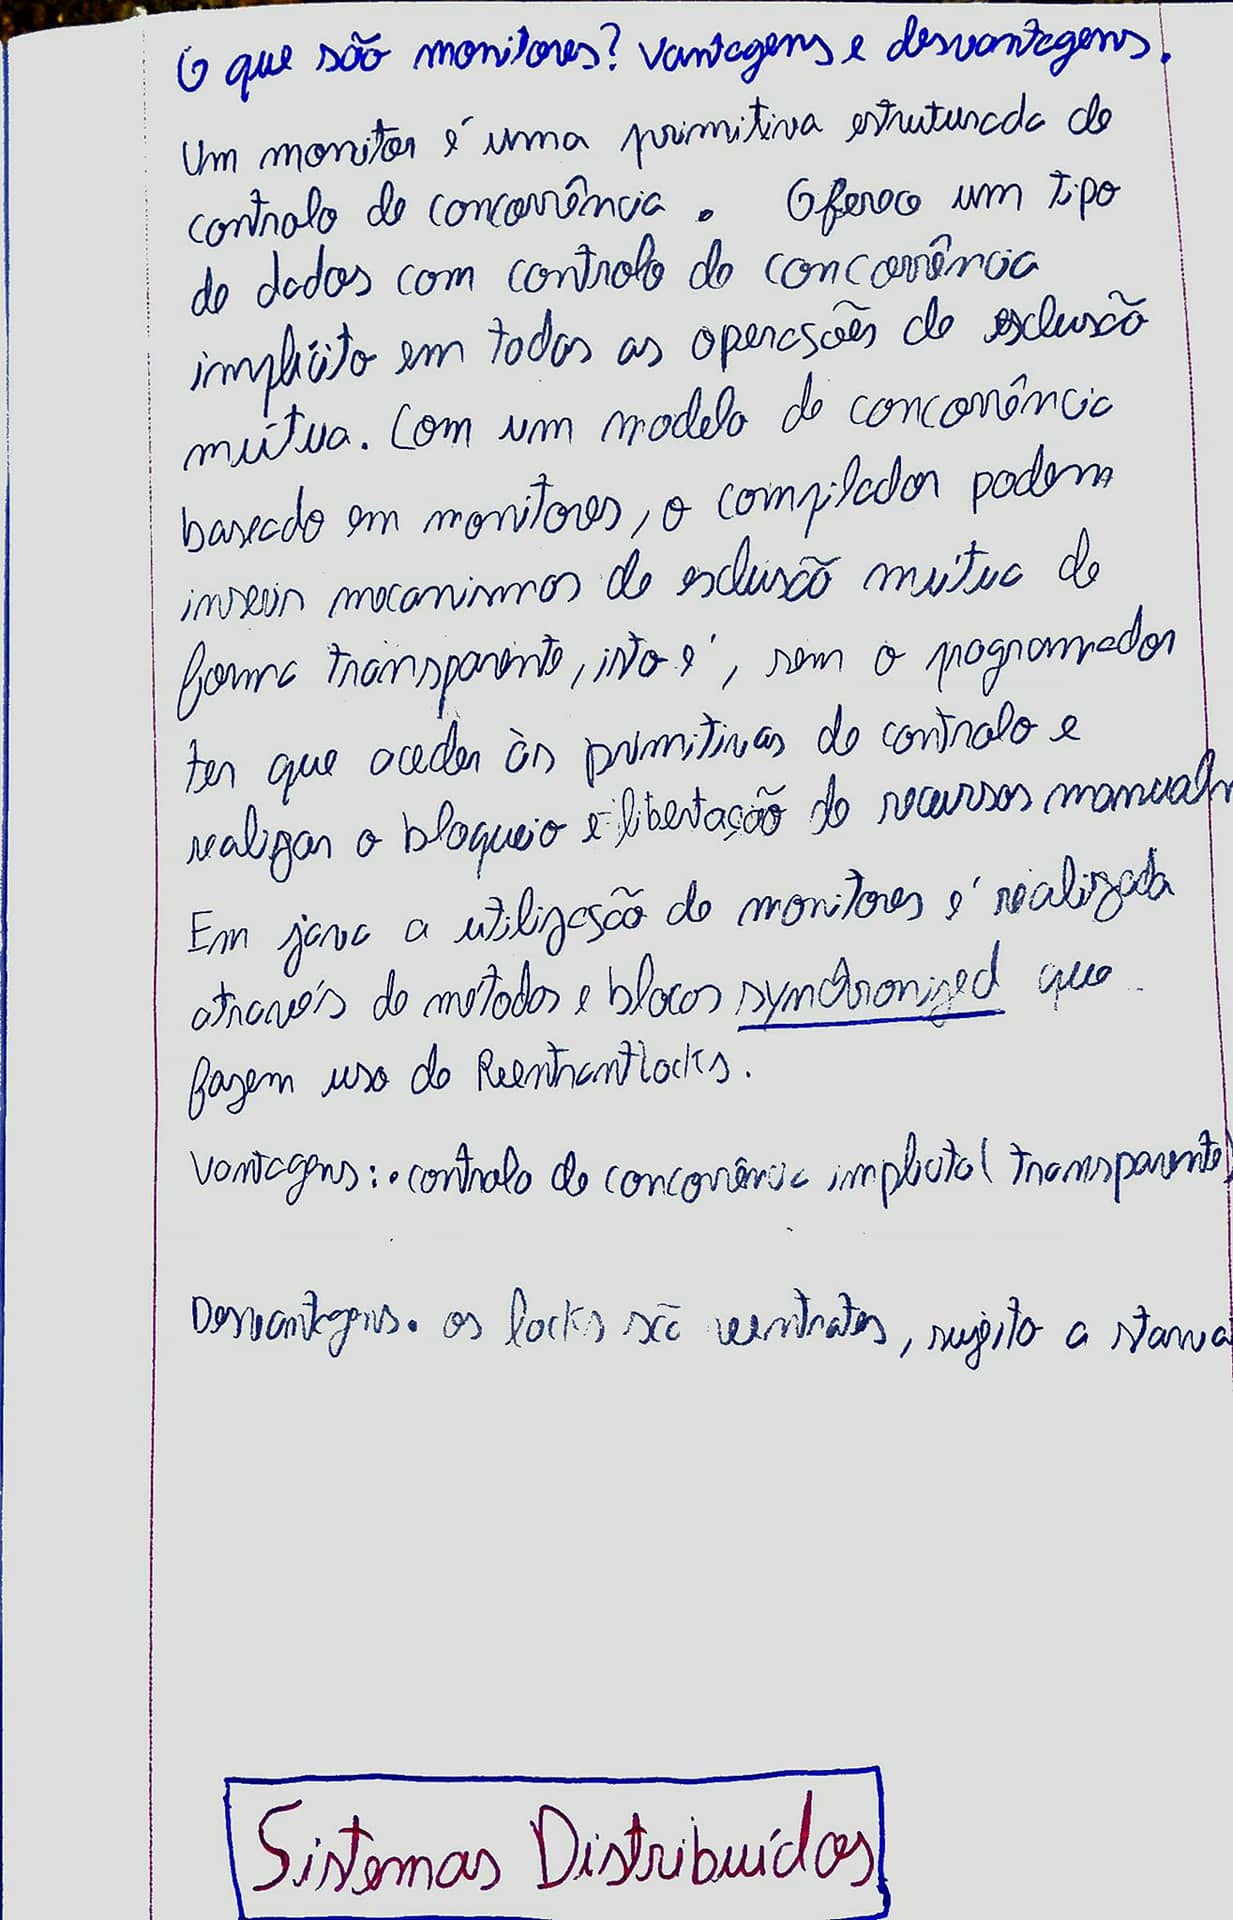 O que são monitores? Vantagens e desvantagens.
Um monitor é uma primitiva estruturada de
controlo de concorrência. Oferece um tipo
de dados com controlo de concorrência
implícito em todas as operações de exclusão
mútua. Com um modelo de concorrência
baseado em monitores, o compilador podem
inserir mecanismos de exclusão mútua de
forma transparente, isto é, sem o programador
ter que aceder às primitivas de controlo e
realizar o bloqueio e libertação de recursos manualm
Em java a utilização de monitores é realizada
através de métodos e blocos synchronized que
fazem uso de Reentrantlocks.
Vantagens: • controlo de concorrência implicito (transparente)
Desvantagens. os locks são reentrates, sujeito a starva
Sistemas Distribuídos